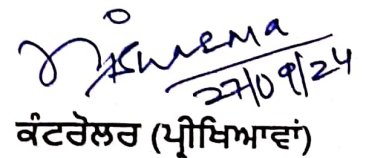 27/09/24
ਕੰਟਰੋਲਰ (ਪ੍ਰੀਖਿਆਵਾਂ)